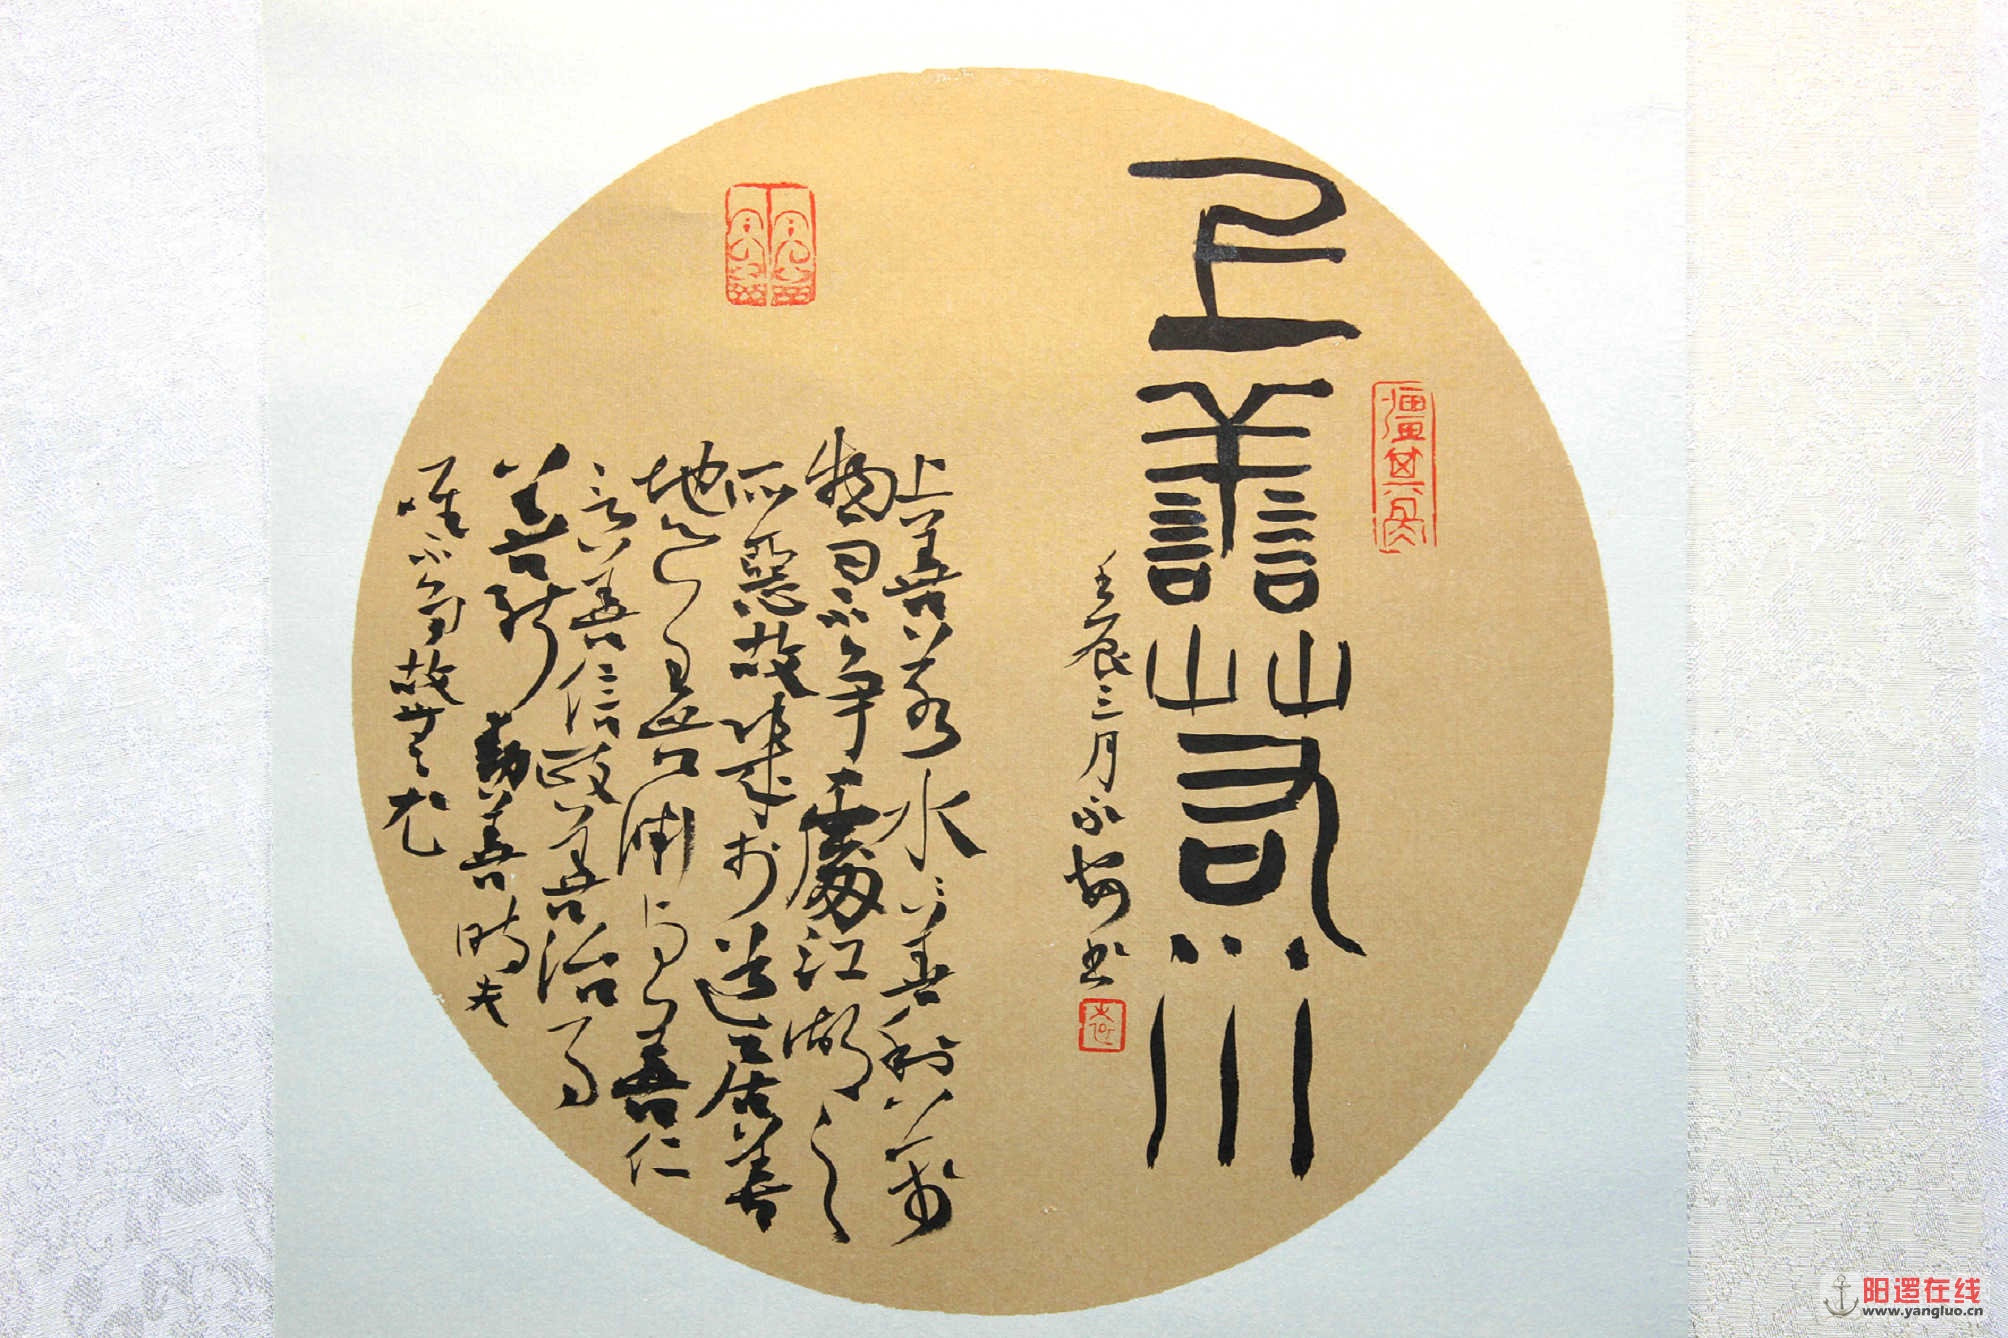 上善若水
壬辰三月
上善若水水善利萬
物而不爭處江湖之
所惡故幾於道居善
地心善渊与善仁
言善信政善治事
善能動善時夫
唯不爭故無尤
阳逻在线
www.yangluo.cn